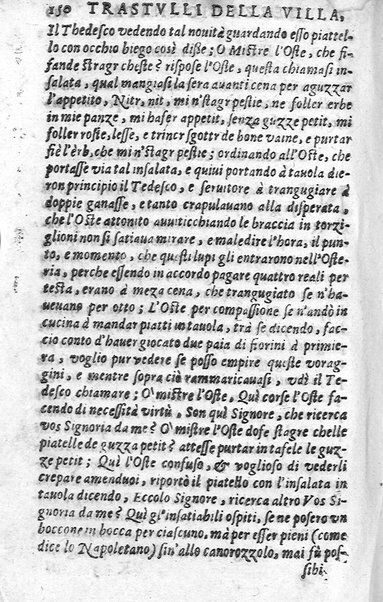 150 TRASTVLLI DELLA VILLA.
Il Thedesco vedendo tal nouità guardando esso piattel-
lo con occhio biego così disse; O Mistre l'Oste, che fi-
fande stragr cheste? rispose l'Oste, questa chiamasi in-
salata, qual mangiosi la sera auanti cena per aguzzar
l'appetito, Nitr, nit, mi n'stagr pestie, ne foller erbe
in mie panze, mi hafer appetit, senza guzze petit, mi
foller roste, lesse, e trincr sgottr de bone vaine, e purtar
fiè l'erb, che mi n'stagr pestie; ordinando all'Oste, che
portasse via tal insalata, e quiui portando à tauola die-
ron principio il Tedesco, e seruitore à trangugiare à
doppie ganasse, e tanto crapulauano alla disperata,
che l'Oste attonito auuiticchiando le braccia in torzi-
glioni non si satiaua mirare, e maledire l'hora, il pun-
to, e momento, che questi lupi gli entrarono nell'Oste-
ria, perche essendo in accordo pagare quattro reali per
testa, erano à meza cena, che trangugiato se n'ha-
ueuano per otto; L'Oste per compassione se n'andò in
cucina à mandar piatti in tauola, trà se dicendo, fac-
cio conto d'hauer giocato due paia di fiorini à primie-
ra, voglio pur vedere se posso empire queste vorag-
gini, e mentre sopra ciò rammaricauasi, vdì il Te-
desco chiamare; O mistre l'Oste, Qui corse l'Oste fa-
cendo di necessità virtù, Son quì Signore, che ricerca
vos Signoria da me? O mistre l'Oste dofe stagre chelle
piatelle de guzza petit? attesse purtar in tafele le guz-
ze petit; Quì l'Oste confuso, & voglioso di vederli
crepare amenduoi, riportò il piatello con l'insalata in
tauola dicendo, Eccolo Signore, ricerca altro Vos Si-
gnoria da me? Quì gl'insatiabili ospiti, se ne posero un
boccone in bocca per ciascuno, mà per esser pieni (come
dice lo Napoletano) sin'allo canorozzolo, mai fù pos-
sibi.